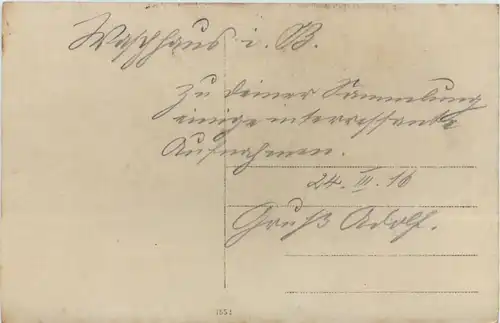 Waschhaus i. B.
Zu deiner Sammlung
einige interressante
Aufnahmen.
24. III. 16
Gruß Adolf.